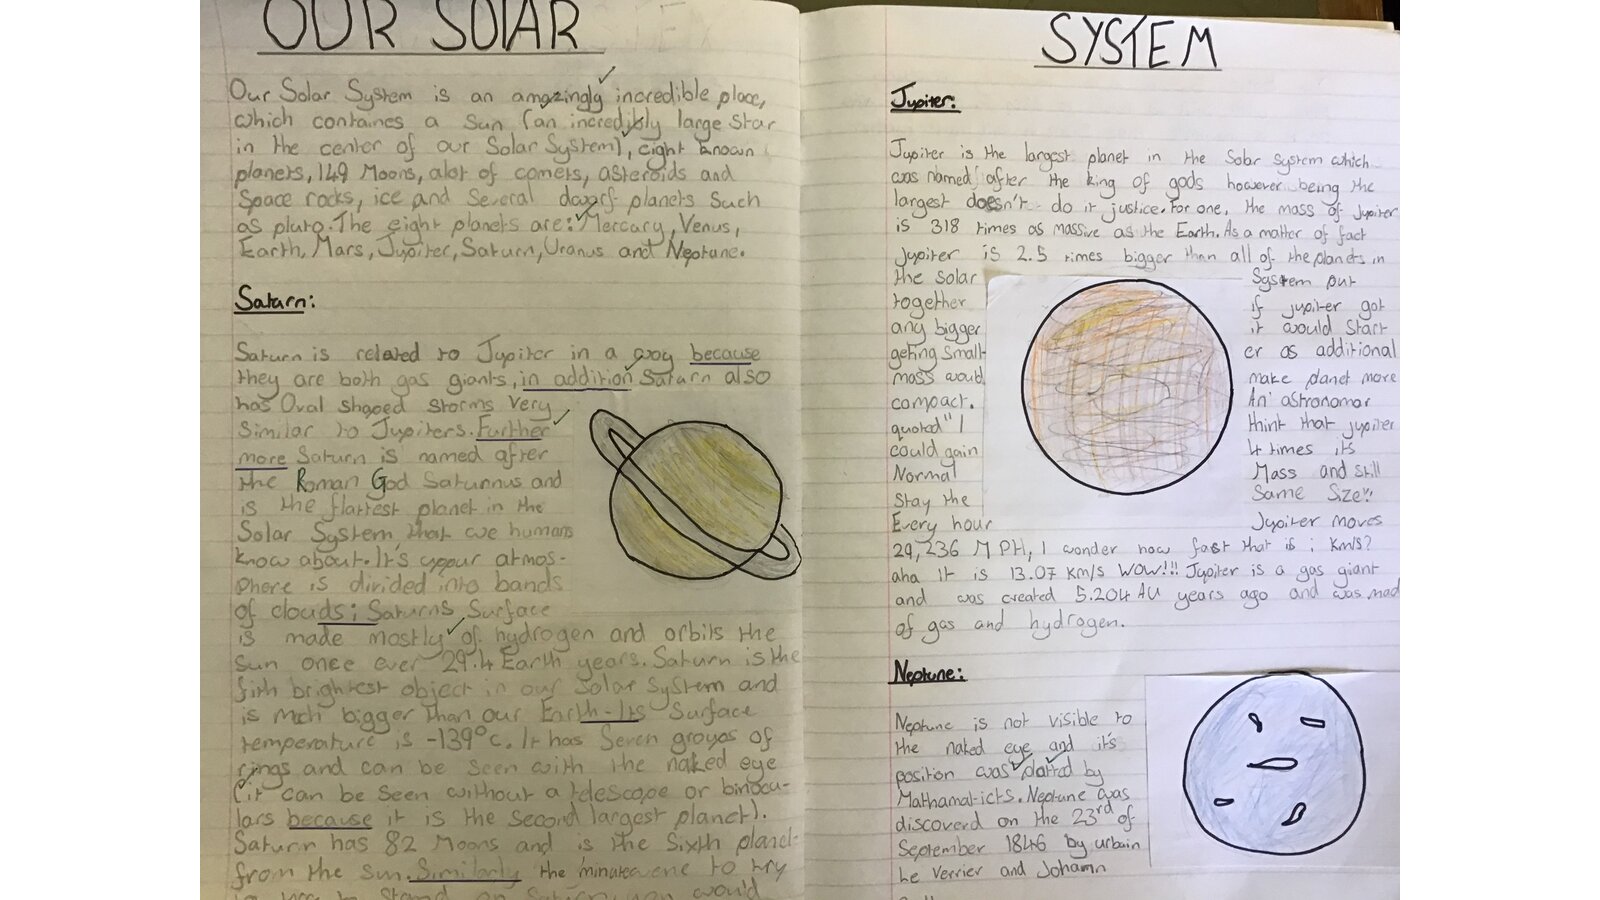 OUR SOLAR
Our Solar System is an amazingly incredible place,
which containes a Sun (an incredibly large Star
in the center of our Solar System), eight known
planets, 149 Moons, alot of comets, asteroids and
Space rocks, ice and Several dwarf planets Such
as pluto. The eight planets are: Mercury, Venus,
Earth, Mars, Jupiter, Saturn, Uranus and Neptune.
Saturn:
Saturn is related to Jupiter in a way because
they are both gas giants, in addition Saturn also
has Oval shaped storms Very
Similar to Jupiters. Further
more Saturn is named after
the Roman God Saturnus and
is the flattest planet in the
Solar System that we humans
know about. It's uppur atmos-
phere is divided into bands
of clouds; Saturns Surface
is made mostly of hydrogen and orbits the
Sun once ever 29.4 Earth years. Saturn is the
fith brightest object in our Solar System and
is much bigger than our Earth-Its Surface
temperature is -139°c. It has Seven groups of
rings and can be Seen with the naked eye
(it can be Seen without a telescope or binocu-
lars because it is the Second largest planet).
Saturn has 82 Moons and is the Sixth planet
from the Sun. Similarly the to try
to stand on would
SYSTEM
Jupiter:
Jupiter is the largest planet in the Solar System which
was named after the king of gods however being the
largest doesn't do it justice. For one, the mass of Jupiter
is 318 times as massive as the Earth. As a matter of fact
Jupiter is 2.5 times bigger than all of the planets in
the solar System put
together if jupiter got
any bigger it would Start
geting Small- er as additional
mass would make planet more
compact. An astronomor
quoted" I think that jupiter
could gain 4 times its
Normal Mass and still
Stay the Same Size"
Every hour Jupiter moves
29,236 MPH, I wonder how fast that is ; Km/s?
aha it is 13.07 Km/s WOW!!! Jupiter is a gas giant
and was created 5.204 AU years ago and was mad
of gas and hydrogen.
Neptune:
Neptune is not visible to
the naked eye and it's
position was platted by
Mathamat-icts. Neptune was
discoverd on the 23rd of
September 1846 by urbain
Le Verrier and Johann